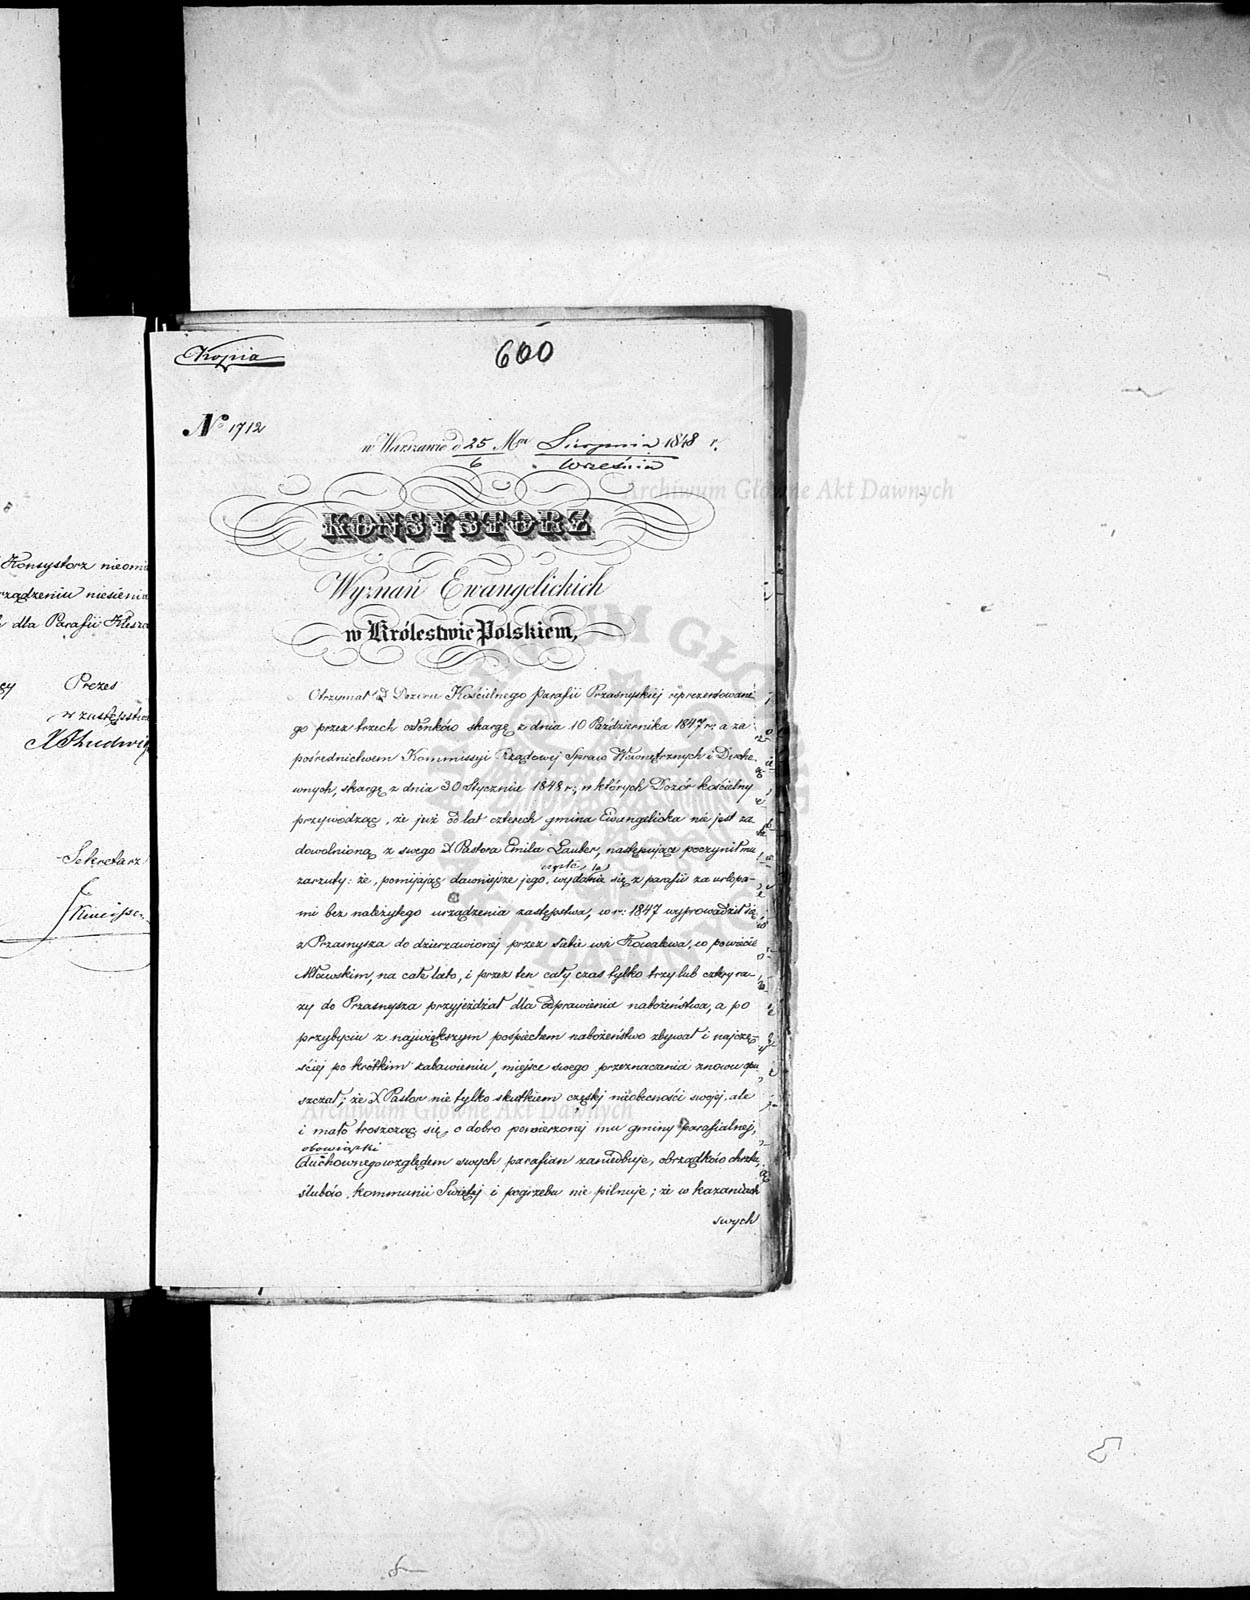 Konsystorz
rządzeniu niesienia
dla Parafii
Prezes
w zastępstwie
Ludwig
Sekretarz
Kopia
600
No 1712
w Warszawie d 25 Mca Sierpnia 1848 r.
6 Września
KONSYSTORZ
Wyznań Ewangelickich
w Królestwie Polskiem,
Otrzymał od Dozoru Kościelnego Parafii Przasnyskiej reprezentowane
go przez trzech członków skargę z dnia 10 Października 1847 r: a za
pośrednictwem Kommissyi Rządowej Spraw Wewnętrznych i Ducho
wnych, skargę z dnia 30 Stycznia 1848 r:, w których Dozór kościelny
przywodząc, że już od lat czterech gmina Ewangelicka nie jest za
dowolnioną z swego X Pastora Emila Lauber, następujące poczynił mu
zarzuty: że, pomijając dawniejsze jego, częste wydalania się z parafii za urlopa-
mi bez należytego urządzenia zastępstwa, w r: 1847 wyprowadził się
z Przasnysza do dzierzawionej przez siebie wsi Kowalewa, w powiecie
Mławskim, na całe lato, i przez ten cały czas tylko trzy lub cztery ra-
zy do Przasnysza przyjeżdżał dla odprawienia nabożeństwa, a po
przybyciu z największym pośpiechem nabożeństwo zbywał i najczę-
ściej po krótkim zabawieniu, miejsce swego przeznaczenia znowu opu
szczał; że X Pastor nie tylko skutkiem częstej nieobecności swojej, ale
i mało troszcząc się o dobro powierzonej mu gminy parafialnej,
obowiązki
duchownego względem swych parafian zaniedbuje, obrządków chrztu,
ślubów, kommunii Świętej i pogrzebu nie pilnuje; że w kazaniach
swych
Archiwum Główne Akt Dawnych
Archiwum Główne Akt Dawnych
ARCHIWUM GŁÓWNE AKT DAWNYCH